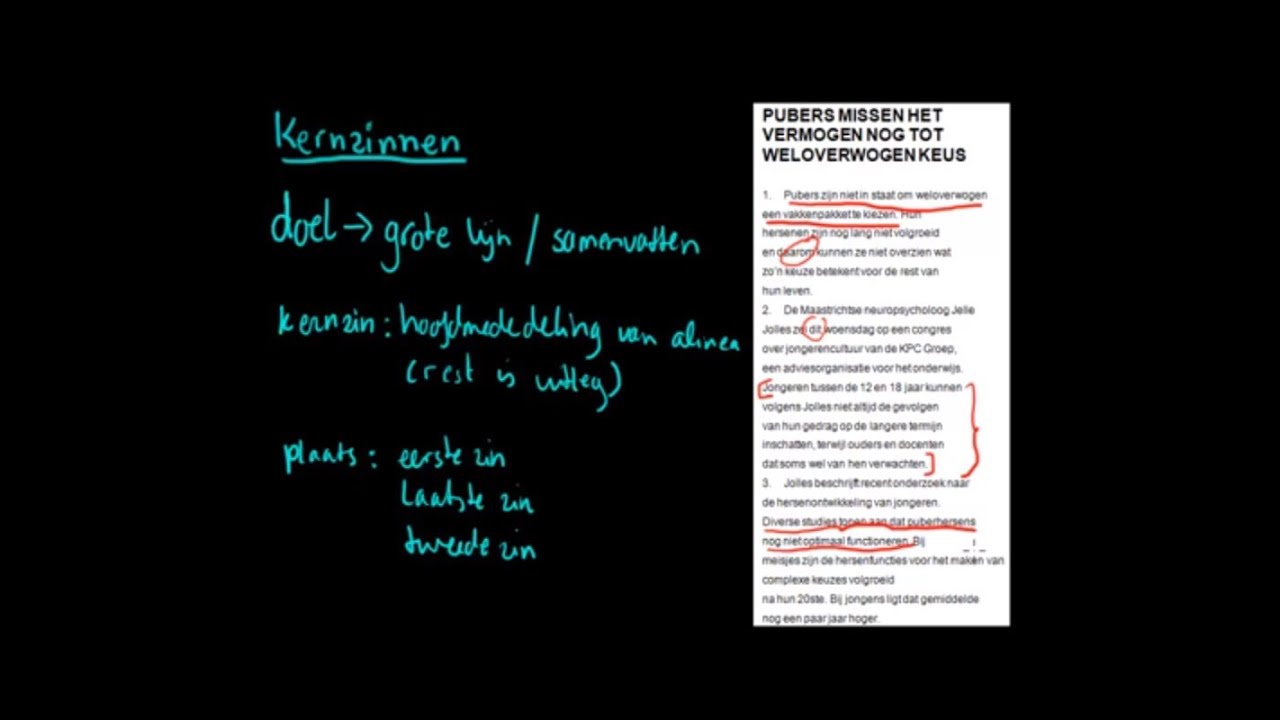 Kernzinnen
doel → grote lijn / samenvatten
kernzin: hoofdmededeling van alinea
(rest is uitleg)
plaats: eerste zin
laatste zin
tweede zin
PUBERS MISSEN HET
VERMOGEN NOG TOT
WELOVERWOGEN KEUS
1. Pubers zijn niet in staat om weloverwogen
een vakkenpakket te kiezen. Hun
hersenen zijn nog lang niet volgroeid
en daarom kunnen ze niet overzien wat
zo'n keuze betekent voor de rest van
hun leven.
2. De Maastrichtse neuropsycholoog Jelle
Jolles zei dit woensdag op een congres
over jongerencultuur van de KPC Groep,
een adviesorganisatie voor het onderwijs.
Jongeren tussen de 12 en 18 jaar kunnen
volgens Jolles niet altijd de gevolgen
van hun gedrag op de langere termijn
inschatten, terwijl ouders en docenten
dat soms wel van hen verwachten.
3. Jolles beschrijft recent onderzoek naar
de hersenontwikkeling van jongeren.
Diverse studies tonen aan dat puberhersens
nog niet optimaal functioneren. Bij
meisjes zijn de hersenfuncties voor het maken van
complexe keuzes volgroeid
na hun 20ste. Bij jongens ligt dat gemiddelde
nog een paar jaar hoger.